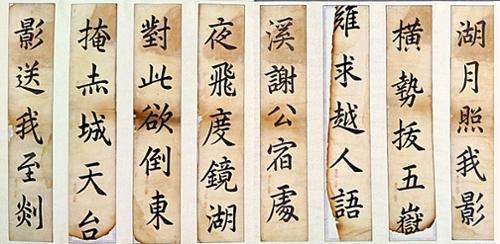 湖月照我影
橫勢拔五嶽
求越人語
溪謝公宿處
夜飛度鏡湖
對此欲倒東
掩赤城天台
影送我至剡